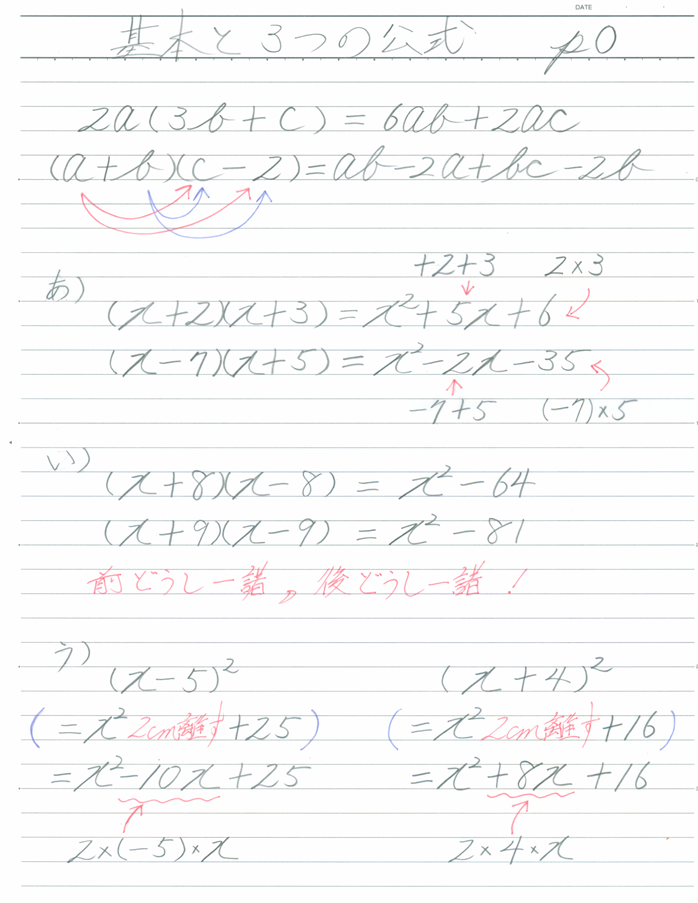 DATE
基本と3つの公式 p0
2a(3b+c)=6ab+2ac
(a+b)(c-2)=ab-2a+bc-2b
+2+3 2×3
あ)
(x+2)(x+3)=x²+5x+6
(x-7)(x+5)=x²-2x-35
-7+5 (-7)×5
い)
(x+8)(x-8)=x²-64
(x+9)(x-9)=x²-81
前どうし一諸、後どうし一諸!
う)
(x-5)² (x+4)²
(=x² 2cm離す+25) (=x² 2cm離す+16)
=x²-10x+25 =x²+8x+16
2×(-5)×x 2×4×x